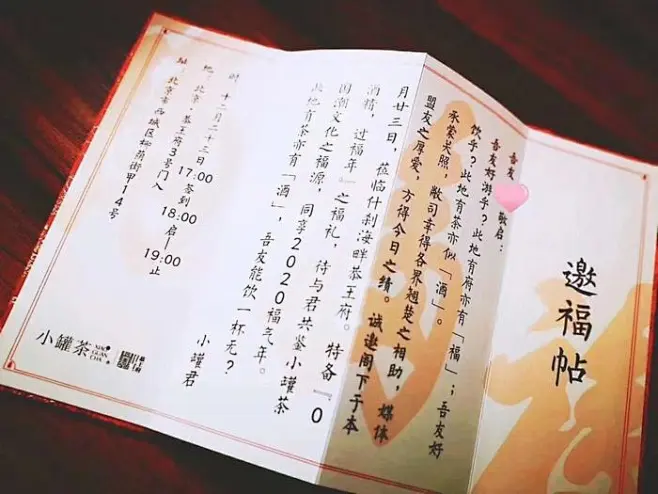 邀福帖
吾友 敬启:
吾友好游乎?此地有府亦有「福」;吾友好
饮乎?此地有茶亦似「酒」。
承蒙关照,敝司幸得各界翘楚之相助,媒体
盟友之厚爱,方得今日之绩。诚邀阁下于本
月廿三日,莅临什刹海畔恭王府。特备『0
酒精,过福年』之福礼,待与君共鉴小罐茶
国潮文化之福源,同享2020福气年。
此地有茶亦有「酒」,吾友能饮一杯无?
小罐君
时:十二月二十三日 17:00签到 18:00启—19:00止
地:北京·恭王府3号门入
址:北京市西城区柳荫街甲14号
小罐茶 XIAO GUAN CHA